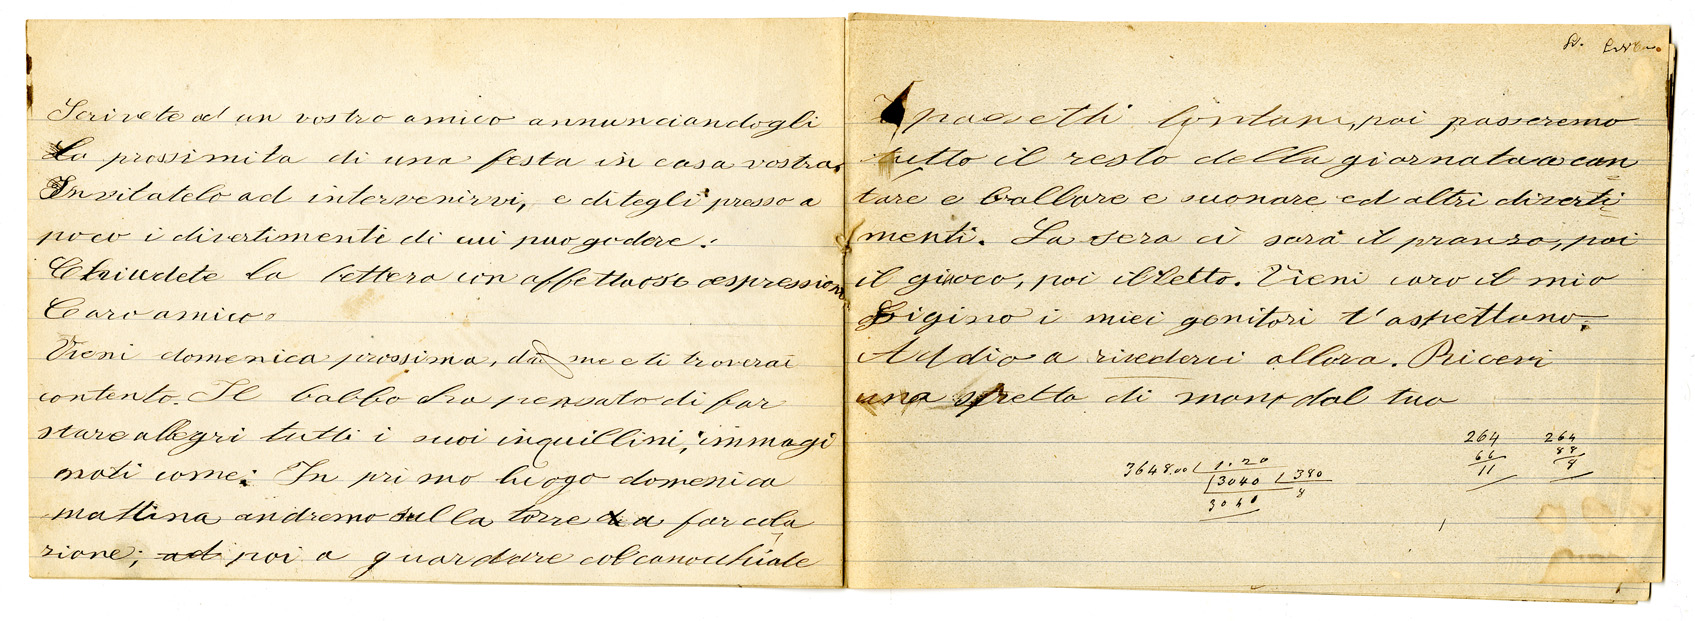 Scrivete ad un vostro amico annunciandogli
La prossimita di una festa in casa vostra.
Invitatelo ad intervenirvi, e ditegli presso a
poco i divertimenti di cui può godere.
Chiudete la lettera con affettuose espressioni
Caro amico
Vieni domenica prossima, da me e ti troverai
contento. Il babbo ha pensato di far
stare allegri tutti i suoi inquillini, immagi
nati come: In primo luogo domenica
mattina andremo sulla torre a far cola
zione; ad poi a guardare col canocchiale
I paesetti lontani, poi passeremo
tutto il resto della giornata a can
tare e ballare e suonare ed altri diverti
menti. La sera ci sarà il pranzo, poi
il giuoco, poi il letto. Vieni caro il mio
Gigino i miei genitori t'aspettano.
Addio a rivederci allora. Ricevi
una stretta di mano dal tuo
264 264
66 88
11 8
3648.00 1.20
3040 380
8
3040